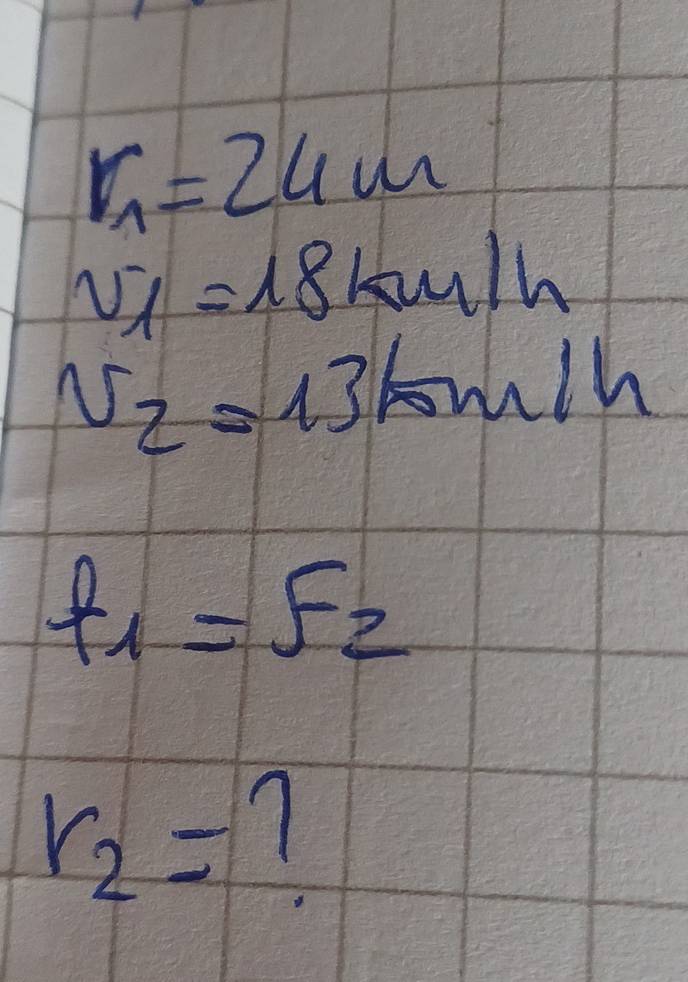 r₁ = 24 m
v₁ = 18 km/h
v₂ = 13 km/h
f₁ = F₂
r₂ = ?